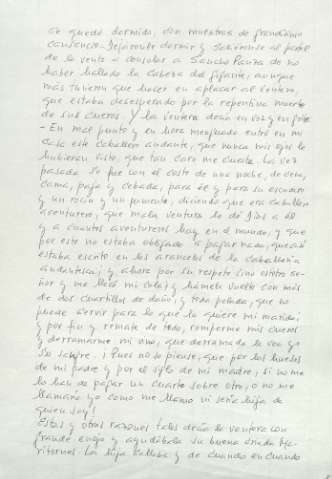 se quedó dormido, con muestras de grandísimo
cansancio. Dejáronle dormir y saliéronse al portal
de la venta a consolar a Sancho Panza de no
haber hallado la cabeza del gigante, aunque
más tuvieron que hacer en aplacar al ventero,
que estaba desesperado por la repentina muerte
de sus cueros. Y la ventera decía en voz y en grito
- En mal punto y en hora menguada entró en mi
casa este caballero andante, que nunca mis ojos le
hubieran visto, que tan caro me cuesta. La vez
pasada se fue con el costo de una noche, de cena,
cama, paja y cebada, para él y para su escudero
y un rocín y un jumento, diciendo que era caballero
aventurero, que mala ventura le dé Dios a él
y a cuantos aventureros hay en el mundo, y que
por esto no estaba obligado a pagar nada, que así
estaba escrito en los aranceles de la caballería
andantesca; y ahora por su respeto vino estotro se-
ñor y me llevó mi cola, y hámela vuelto con más
de dos cuartillos de daño, toda pelada, que no
puede servir para lo que la quiere mi marido;
y por fin y remate de todo, romperme mis cueros
y derramarme mi vino, que derramada le vea yo
su sangre. ¡Pues no se piense, que por los huesos
de mi padre y por el siglo de mi madre, si no me
lo han de pagar un cuarto sobre otro, o no me
llamaría yo como me llamo ni sería hija de
quien soy!
Estas y otras razones tales decía la ventera con
grande enojo y ayudábala su buena criada Ma-
ritornes. La hija callaba y de cuando en cuando